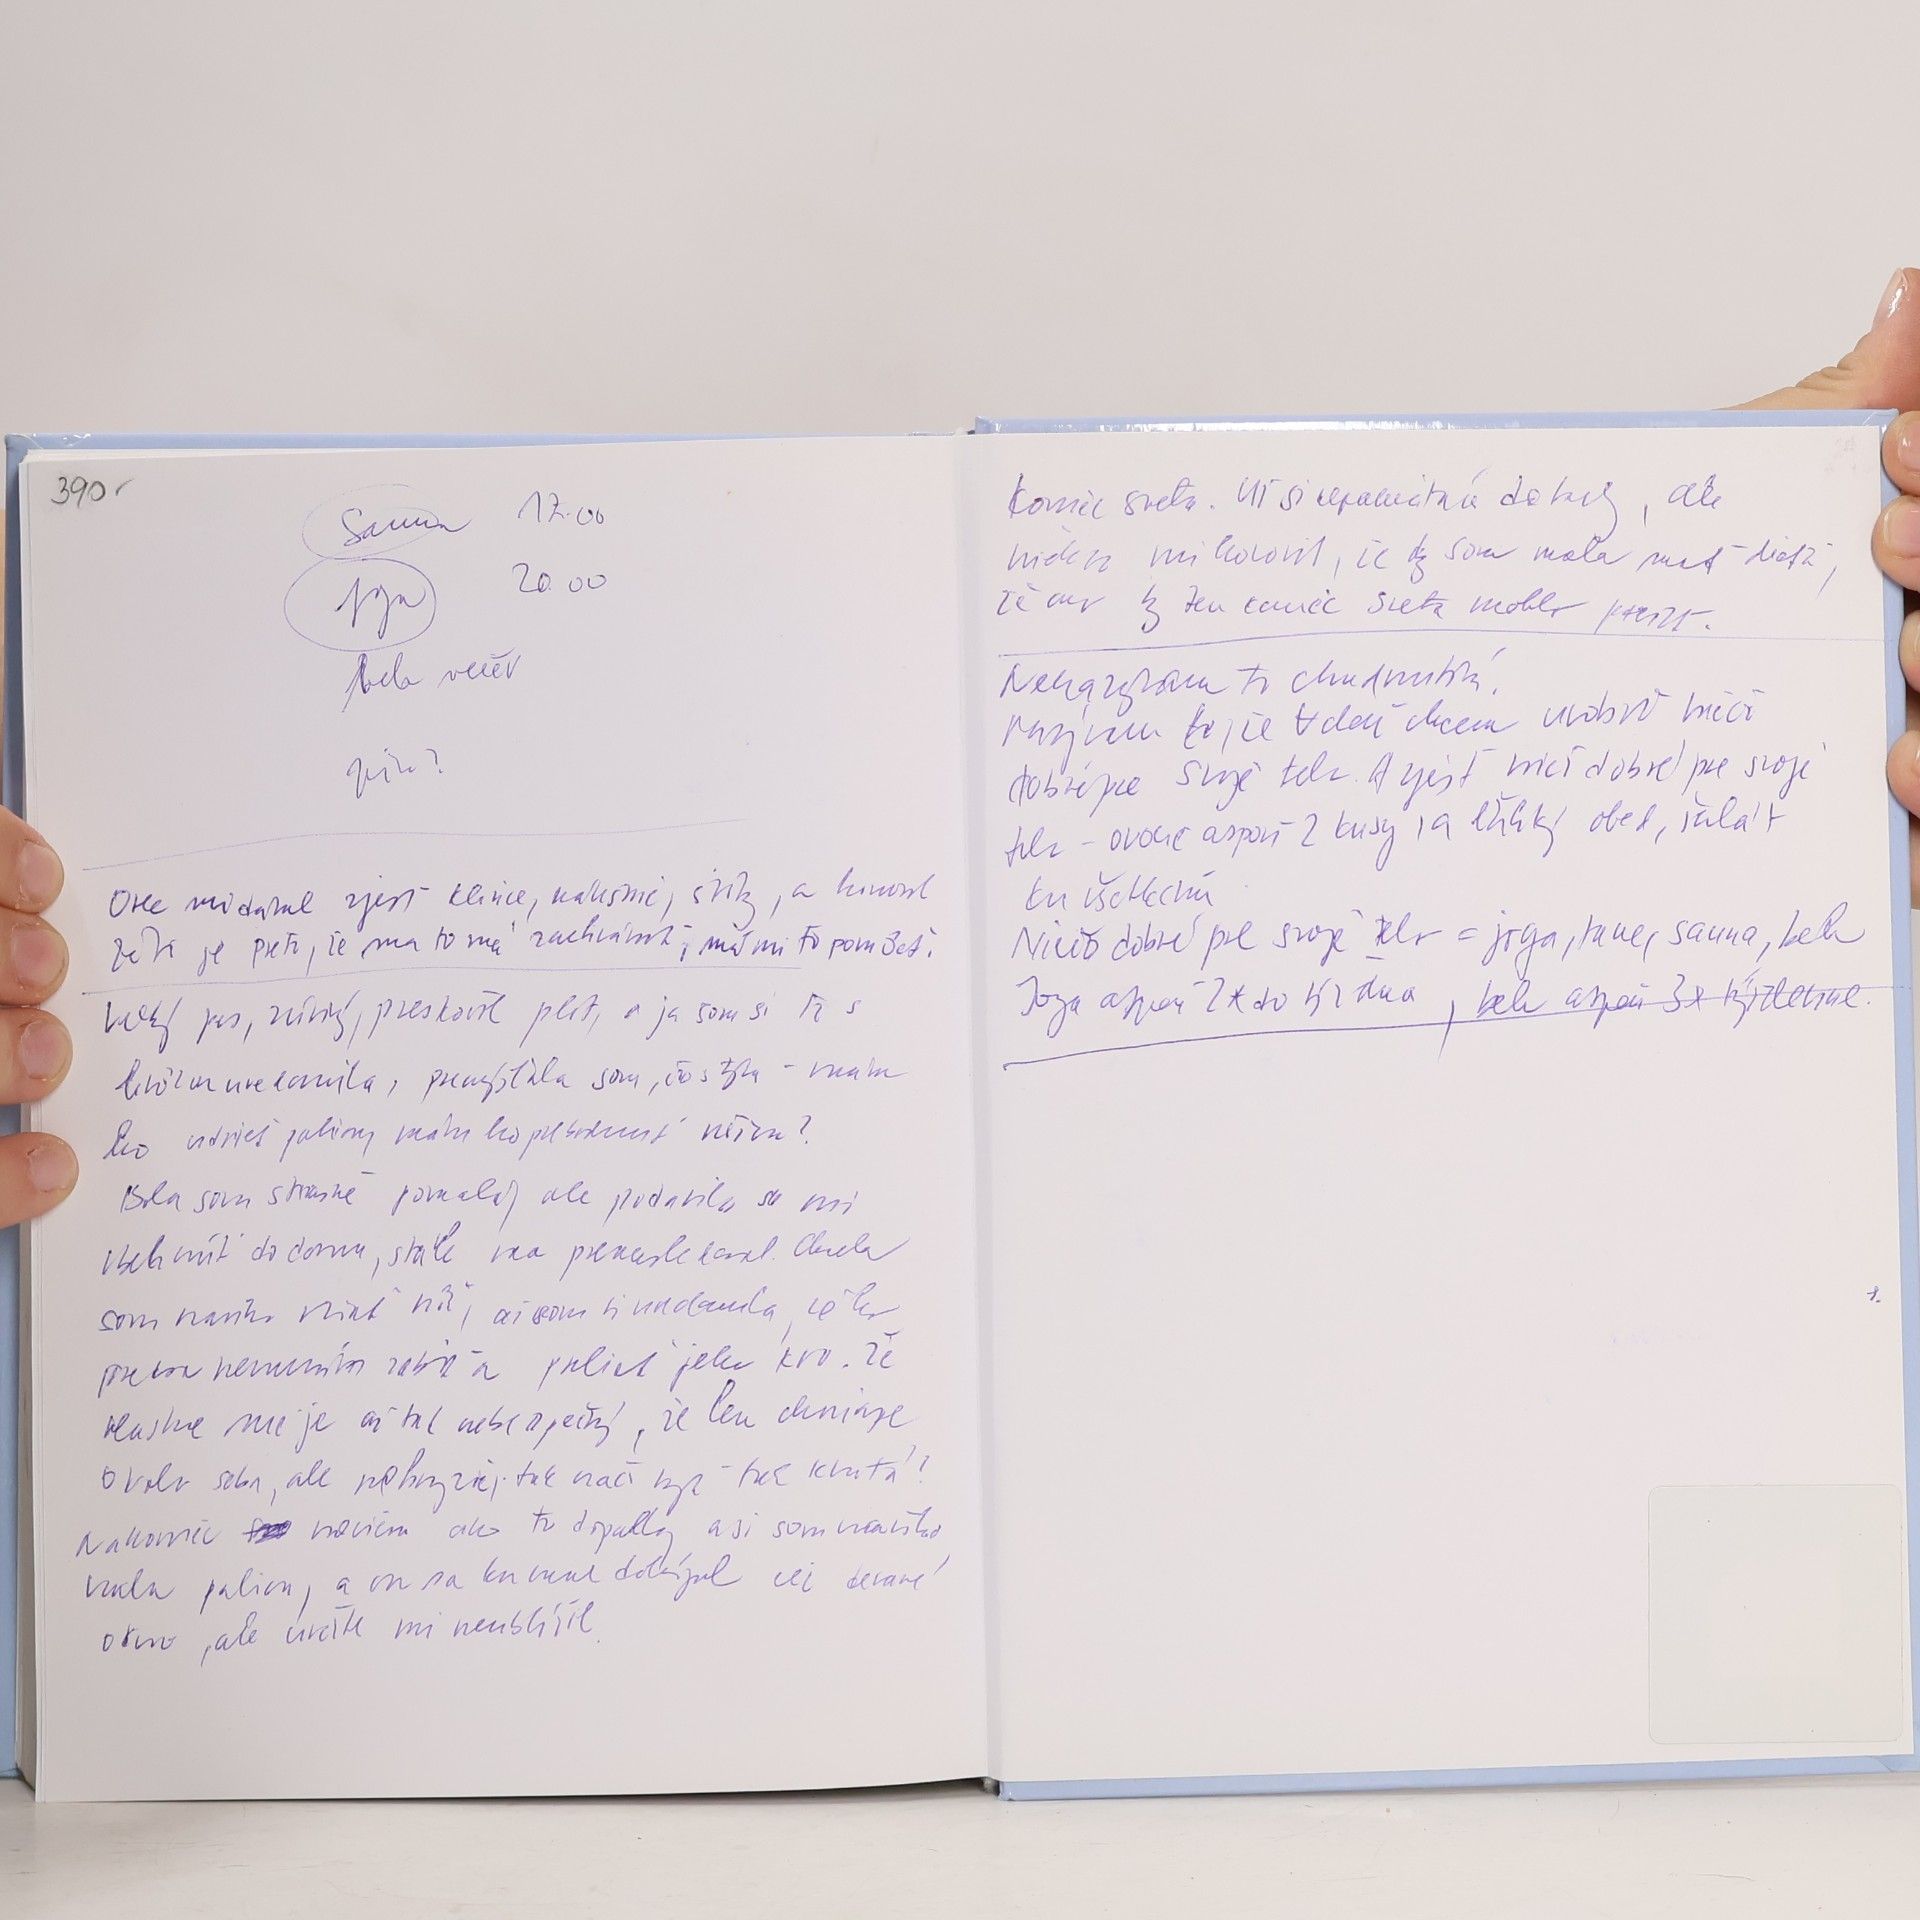 390
Sauna 17.00
Joga 20.00
večer
Otec mi dával zjesť klince, a hovoril
že je preto, že ma to má zachrániť, má mi to pomôcť.
Veľký pes, zúrivý, preskočil plot, a ja som si to s
uvedomila, premýšľala som, čo s tým - mám
ho udrieť palicou, mám ho
Bola som strašne pomalá, ale podarilo sa mi
vbehnúť do domu, stále ma prenasledoval. Chcela
som naňho vziať nôž, ai som si uvedomila, že ho
preboha nemusím zabiť a preliať jeho krv. Že
vlastne nie je až tak nebezpečný, že len chniape
okolo seba, ale nehryzie, tak načo byť tak krutá?
Nakoniec neviem ako to dopadlo, asi som naňho
vzala palicu, a on sa ku mne dobýjal cez
okno, ale určite mi neublížil.
Koniec sveta. Už si nepamätám dobre, ale
niekto mi hovoril, že by som mala mať dieťa,
že by ten koniec sveta mohlo prežiť.
Nenazývam to chudnutím.
Nazývam to, že deň chcem urobiť niečo
dobré pre svoje telo. A zjesť niečo dobré pre svoje
telo - ovocie aspoň 2 kusy, a ľahký obed, šalát
ku všetkému
Niečo dobré pre svoje telo = joga, tanec, sauna, beh
Joga aspoň 2x do týždňa, beh aspoň 3x týždenne.